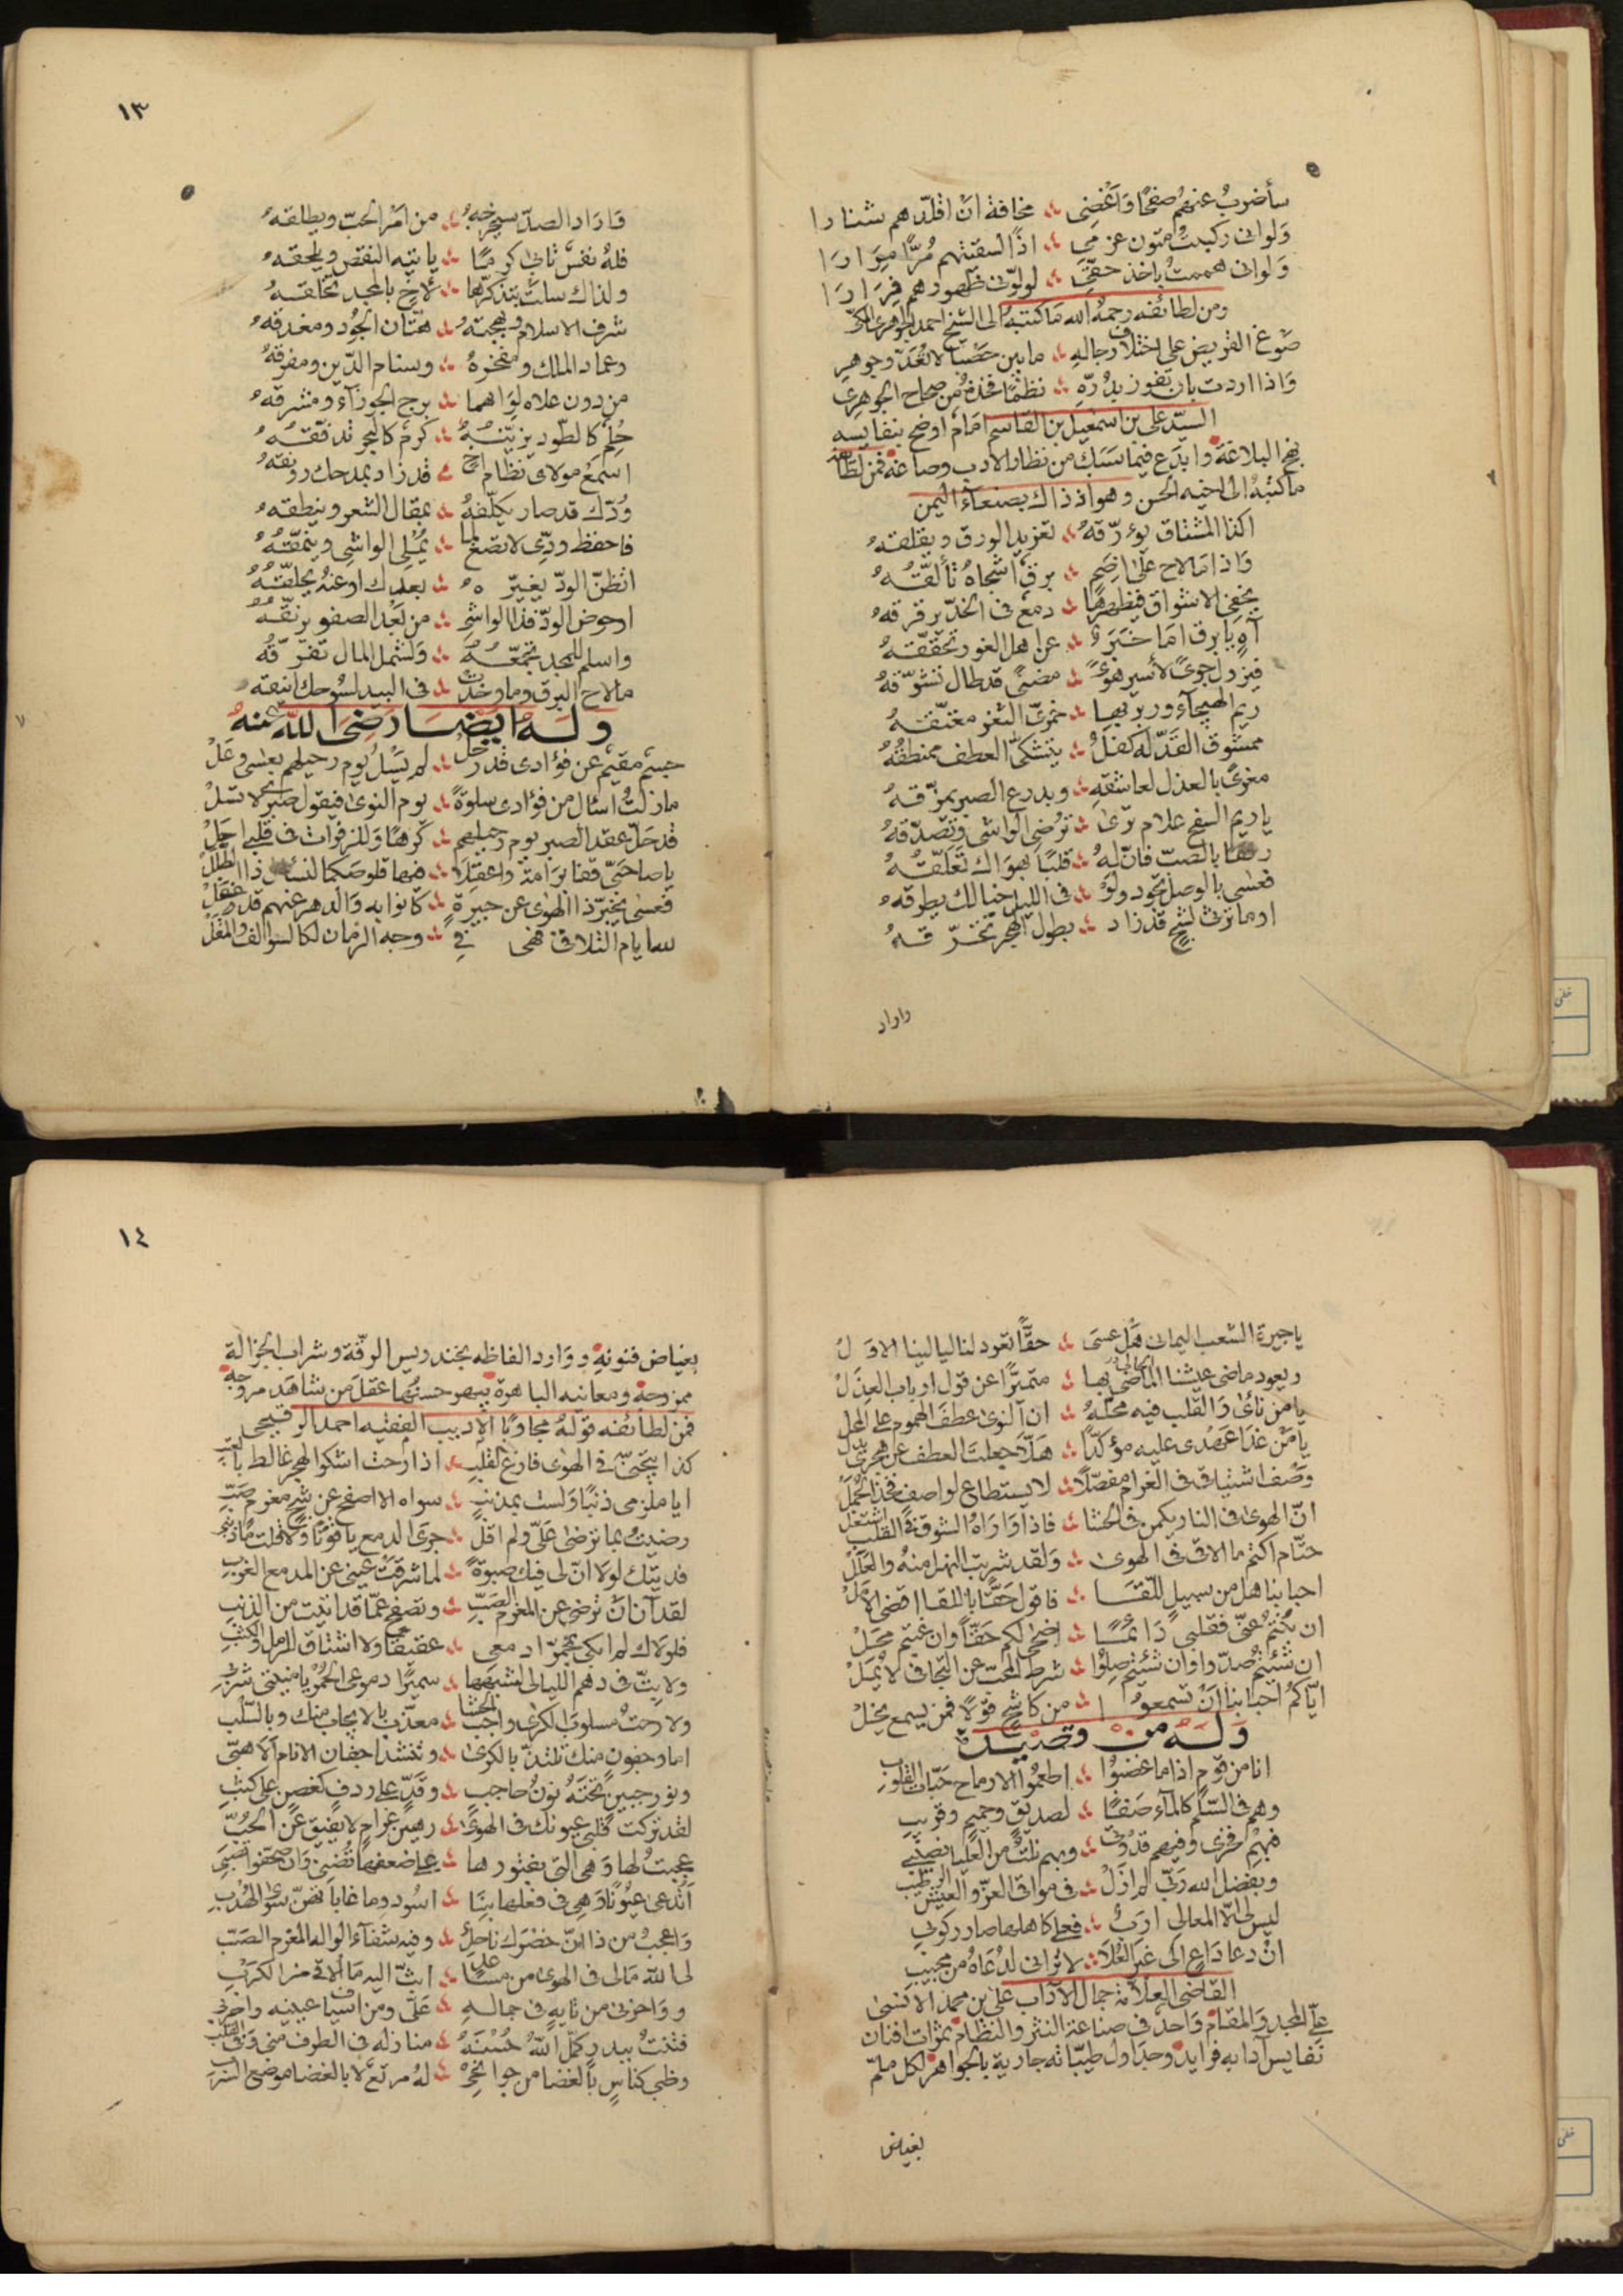 سأضربُ عنهمُ صفحًا وَاُغْضِى ؞ مخافة انْ اقلّدهم شنارا
وَلوانى ركبتُ متون عزمى ؞ اذًا لسقيتهم مُرًّا مِرَارَا
وَلوانى هممتُ باخذ حقّى ؞ لولّونى ظهورهم فِرَارَا
ومن لطائفه رحمهُ الله مَا كتبهُ الى الشيخ احمد الجوهرى المكّى
صَوغ القريض على اختلاف رجالهِ ؞ مابين حَصْبَا لا تُعَدّ وجوهر
وَاذا اردت بان تفوز بدُرّهِ ؞ نظمًا فخذهُ من صحاح الجوهرى
السيّد على بن اسمعيل بن القاسم امَام اوضح بنفايسه
نهج البلاغة وابدَع فيما سَبَك من نظار الادب وصاغهُ فمن لطائفه
ماكتبهُ الى اخيه الحسن وهو اذ ذاك بصنعآء اليمن
اكذا المشتاق يؤرّقهُ ؞ تغريد الورق ويقلقهُ
وَاذا مَا لاح على اضمٍ ؞ برقٌ اشجاهُ تألّقُهُ
يخفى الاشواق فيظهرها ؞ دمعٌ فى الخدّ يرقرقهُ
آهٍ يا برق امَا خبَرٌ ؞ عن اهل الغور تحقّقهُ
فيزول جوىً لأسير هوىً ؞ مضنىً قد طال تشوّقهُ
ريم الهيجآء وربربها ؞ خمرىّ الثغر معتّقهُ
ممشوق القدّ لهُ كفلٌ ؞ يتشكّى العطف ممنطقُهُ
مغرىً بالعذل لعاشقهِ ؞ وبدرع الصبر يمزّقهُ
ياريم السفح علام ترَى ؞ ترُضى الواشى وتصدّقهُ
رفقا بالصبّ فانّ لهُ ؞ قلبًا بهوَاك تعلّقُهُ
فعسى بالوصل تجود ولَوْ ؞ فى الليل خيالك يطرقهُ
اوماترثى لشجٍ قد زاد ؞ بطول الهجر تحرّقهُ
واراد
١٣
فَارَاد الصدّ سيخرجهُ ؞ من اَمْر الحبّ ويطلقهُ
فلهُ نفسٌ تابى كرمًا ؞ يأتيه النقص ويلحقهُ
ولذاك سلتُ بتذكّرها ؞ لأخٍ بالمجد تخلّقهُ
شرف الاسلام وبهجتهُ ؞ هتّان الجُود ومغدقهُ
وعماد الملك ومفخرهُ ؞ وسنام الدّين ومفرقهُ
من دون علاه لوَاهمها ؞ برج الجوزآء ومشرقهُ
حُلِمٌ كالطود يزيّنهُ ؞ كرمٌ كالبحر تدفّقهُ
اسمع مولاى نظام اخ ؞ قد زاد بمدحك رونقهُ
وُدّك قد صار يكلّفهُ ؞ بمقال الشعر وينطقهُ
فاحفظ ودّى لا تصغ لما ؞ يُمْلى الواشى وينمّقُهُ
اتظنّ الودّ يغيّرهُ ؞ بعدك اوعنهُ يحلّقُهُ
اوحوض الودّ قذا الواشى ؞ من بَعْد الصفو يرنّقهُ
واسلم للمجد تجمّعهُ ؞ وَلشمل المال تفرّقُهُ
مالاح البرق وماوخدت ؞ فى البيد لسُوحك اينقه
وَلَهُ ايضًا رضى الله عنهُ
جسمٌ مقيمٌ عن فؤادى قد رحلْ ؞ لم يَسْلُ يوم رحيلهم بعسى وعَلْ
مازلتُ اسئال من فؤادى سلوةً ؞ يوم النوى فيقول صبرٌ لا تسَلْ
قد حَلّ عقد الصبر يوم رحيلهم ؞ كرهًا وَللزفرات فى قلبى احَلْ
ياصاحبَىّ قفا برَامة واعقلا ؞ فيها قلوصكما لنسال ذا الطللْ
فعسى يخبّر ذا الهوى عن جيرَةٍ ؞ كانوا به وَالدهر عنهم قد غفلْ
ايام التلاقى فهى فى ؞ وجه الزمان لكالسوالف والمقلْ
ياجيرة الشعب اليمانى هَلْ عسَى ؞ حقًّا تعود لنا ليالينا الاوَلْ
ويعود ماضى عيشنا الماضى بها ؞ متميزًا عن قول ارباب العذلْ
يامن نأىٰ وَالقلب فيه محلّهُ ؞ ان النوى عطفَ الهموم على المحل
يامَنْ غدَا عهدى عليه مؤكّدًا ؞ هَلّا جعلت العطف عن هجرى بدل
وَصْف اشتياقى فى الغرام مفصّلًا ؞ لا يستطاع لواصفٍ فخذ الجُمَلْ
انّ الهوى فى النار يكمن فى الحشا ؞ فاذاوَارَاهُ الشوق فى القلب اشتعل
حتّام اكتم ما الاقى فى الهوى ؞ وَلقد شربت النهل منهُ والعَلَلْ
احبابنا هل من سبيل للّقَا ؞ فاقول حَقًّا باللقا اقضى الاملْ
ان كُنتمُ عنّى فقلبى دَائمًا ؞ اضحى لكم حَقًّا وان غبتم محَلْ
ان شئتمُ صدّوا وان شئتم صِلُوْا ؞ شرط المحبّ عن التجافى لا يَمَلْ
ايّاكمُ احبابنا انْ تسمعوا ؞ من كاشحٍ قولًا فمن يسمع يخَلْ
وَلَهُ من قصيدة
انا من قوم اذا ما غضبُوا ؞ اطعمُوا الارماح حبّات القلوب
وهم فى السّلم كالمآء صَفَا ؞ لصديقٍ وحميمٍ وقريب
فبهم فخرى وفيهم قدوتى ؞ وبهم نلتُ من العليا نصيبى
وبفضل الله ربّى لم ازَلْ ؞ فى مراقى العزّ والعيش الرطيب
ليس لى الّا المعالى اربٌ ؞ فعلى كاهلها صار ركوبى
انْ دعا دَاعٍ الى غير العُلَا ؞ لا ترانى لدُعَاهُ من مجيب
القاضى العلّامة جمال الآداب على بن محمد الانسى
علّ المجد وَالمقام وَاحد فى صناعة النثر والنظام بمُوات افنان
نفايس آدابه فرايد وجداول طيبّاته جارية بالجواهر لكل ملمّ
بغياض
١٤
بغياض فنونهِ ووَارد الفاظه بخندريس الرقّة وشراب الجزالة
ممزوجة ومعانيه الباهرة يبهر حسنُها عقل من شاهَد مروجه
فمن لطائفه قولهُ مجاوبًا الاديب الفقيه احمد الرقيحى
كذا يتجنّى فى الهوى فارغ القلب ؞ اذا رحت اشكوا الهجر غالط بالعتب
ايا ملزمى ذنبًا وَلست بمذنب ؞ سواه الا اصفح عن شجٍ مغرمٍ صبّ
رضيتُ بما ترضى عَلَىّ ولم اقل ؞ جرَى الدمع ياقوتًا وَلا قلت ما ذنبى
فديتك لولا انّ لى فيك صبوةً ؞ لما شرقت عينى عن المدمع الغرب
لقد آن انْ ترضى عن المغرم الصّبّ ؞ وتصفح عمّا قد اتيت من الذنب
فلولاك لم ابكى بحمرّ ادمعى ؞ عقيقًا ولا اشتاق للرمل والكثب
ولابتّ فى دهم الليالى لشبهها ؞ سميرًا دموعى الحُمْرُ يا منيتى شربى
ولا رحتُ مسلوبَ الكرى واجب الحشا ؞ معذّب بالايجاب منك وبالسلب
اما وجفونٍ منك تلتذّ بالكرى ؞ وتنشد اجفان الانام الاهبّى
ونور جبينٍ تحتَهُ نونُ حاجب ؞ وقدّ على ردفٍ كغصن على كثب
لقد تركت قلبى عيونك فى الهوىٰ ؞ رهين غرامٍ لا يفيق عن الحُبّ
عجبتُ لها وَهى التى بفتورها ؞ على ضعفها تُضنى وَان صحّفوا تصبى
اتدعى عيُونًا وَهِى فى فعلها بنَا ؞ اسُودٌ وما غاباتهنّ سوى الهُدْب
وَاعجبُ من ذا انّ خصْرك ناحلٌ ؞ وفيه شفآء الواله المغرم الصَبّ
لى الله مَالى فى الهوى من مساعدٍ ؞ ابثّ اليه مَا الاقى من الكرْبِ
ووَاحزنى من تايهٍ فى جمالهِ ؞ عَلَىّ ومن اسياف عينيه واحربى
فتنتُ ببدرٍ كمّل اللهُ حُسْنَهُ ؞ منازله فى الطرف منى وفى القلب
وظبى كناسٍ بالغضا من جوانحىْ ؞ لهُ مرتعٌ لا بالغضا موضع السّرب